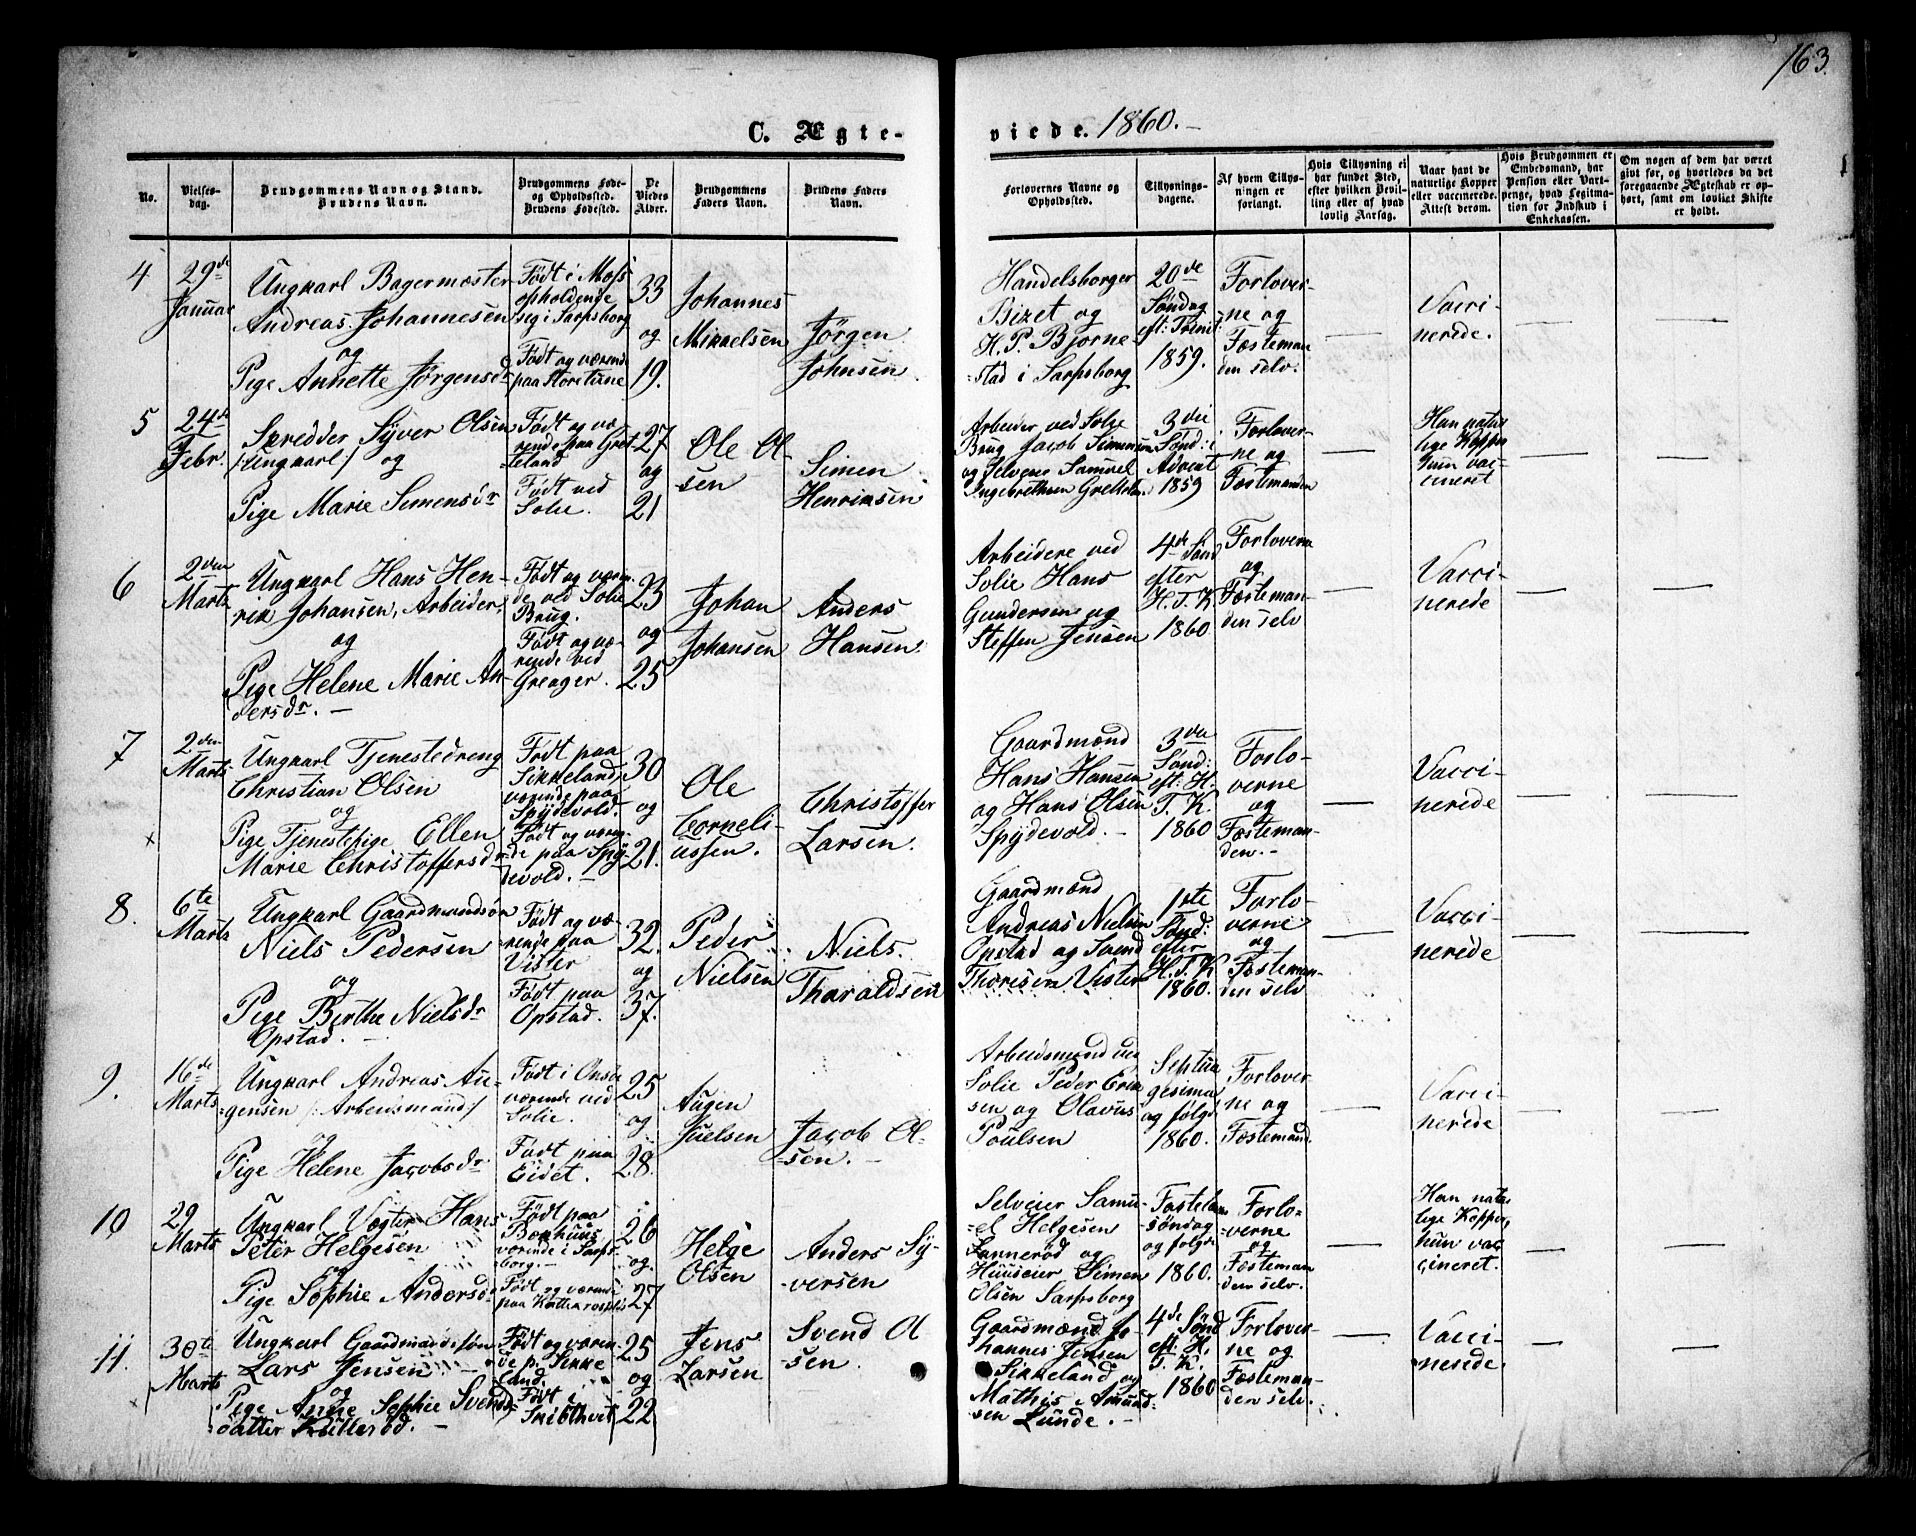 163.
C. Ægte-
viede. 1860.-
No.
Vielses-
dag.
Brudgommens Navn og Stand.
Brudens Navn.
Brudgommens Føde-
og Opholdssted.
Brudens Fødested.
De
Viedes
Alder.
Brudgommens
Faders Navn.
Brudens Faders
Navn.
Forlovernes Navne og
Opholdssted.
Tillysnings-
dagene.
Af hvem Tillys-
ningen er
forlangt.
Hvis Tillysning ei
har fundet Sted,
efter hvilken Bevil-
ling eller af hvad
lovlig Aarsag.
Naar havt de
naturlige Kopper
eller vaccinerede.
Attest derom.
Hvis Brudgommen er
Embedsmand, har
Pension eller Vart-
penge, hvad Legitima-
tion for Indskud i
Enkekassen.
Om nogen af dem har været
givt før, og hvorledes da det
foregaaende Ægteskab er op-
hørt, samt om lovligt Skifte
er holdt.
4
29de
Januar
Ungkarl Bagermester
Andreas Johannesen
og
Pige Annette Jørgensdr
Født i Moss
opholdende
sig i Sarpsborg
Født og værende
paa Storetune
33
og
19.
Johannes
Mikaelsen
Jørgen
Johnsen
Handelsborger
Bizet og
H. P. Bjørne-
stad i Sarpsborg
20de
Søndag
eft: Trinit:
1859.
Forlover-
ne og
Fæsteman
den selv.
Vacci-
nerede.
5
24de
Febr.
Skredder Syver Olsen
/:Ungkarl:/ og
Pige Marie Simensdr
Født og væ-
rende paa Gret-
teland
Født ved
Solie.
27
og
21
Ole Ol-
sen
Simen
Henriksen
Arbeider ved Solie
Brug Jacob Simensen
og Selveier Samuel
Ingebrethsen
3die
Sønd: i
Advent
1859
Forlover-
ne og
Fæstemanden
Han natur
lige Kopper
hun vac-
cineret
6
2den
Marts
Ungkarl Hans Hen-
rik Johansen, Arbeider,
og
Pige Helene Marie An-
dersdr. -
Født og væren-
de ved Solie
Brug.
Født og væ-
rende ved
Greager.
23
og
25
Johan
Johansen
Anders
Hansen.
Arbeidere ved
Solie Hans
Gundersen og
Steffen Jensen
4de Sønd
efter
H. T. K.
1860
Forloverne
og
Fæsteman-
den selv
Vacci-
nerede
7
2den
Marts
Ungkarl Tjenestedreng
Christian Olsen
og
Pige Tjenestepige Ellen
Marie Christoffersdr
Født paa
Sikkeland,
værende paa
Spydevold.
Født og væren-
de paa Spy-
devold. -
30
og
21.
Ole
Corneli-
ussen.
Christoffer
Larsen.
Gaardmænd
Hans Hansen
og Hans Olsen
Spydevold. -
3die
Sønd:
eft: H.
T. K.
1860
Forlo-
verne
og
Fæsteman-
den. -
Vacci-
nerede
8.
6te
Marts
Ungkarl Gaardmandsøn
Niels Pedersen
og
Pige Berthe Nielsdr
Opstad. -
Født og væ-
rende paa
Vister
Født paa
Opstad.
32.
og
37.
Peder
Nielsen
Niels
Tharaldsen
Gaardmænd
Andreas Nielsen
Opstad og Svend
Thoresen Vister
1ste
Sønd:
efter
H. T. K
1860.
Forlo-
verne
og
Fæsteman-
den selv
Vacci-
nerede
9.
16de
Marts
Ungkarl Andreas Au-
gensen /:Arbeidsmand:/
og
Pige Helene Jacobsdr
Født i Onsø
værende ved
Solie.
Født paa
Eidet.
25
og
28.
Augen
Juelsen
Jacob Ol-
sen. -
Arbeidsmænd ved
Solie Peder Erik
sen og Olavus
Poulsen
Septua
gesima
og følgd
1860.
Forlover-
ne og
Fæstemand.
Vacci-
nerede
10
29
Marts
Ungkarl Vægter Hans
Peter Helgesen
og
Pige Sophie Andersdr
Født paa
værende i Sarps-
borg. -
Født og værende
paa
26
og
27
Helge
Olsen
Anders Sy-
versen
Selveier Samu-
el Helgesen
Lannerød og
Huuseier Simen
Olsen Sarpsborg
Fastelavns
søndag
og følgd
1860.
Forlo-
verne
og
Fæsteman
den selv.
Han natur
lige Kopper,
hun vac
cineret.
11.
30te
Marts
Ungkarl Gaardmandssøn
Lars Jensen
og
Pige Anne Sophie Svends-
datter
Født og væren-
de p. Sikke
land.
Født i
Skibthvet
25
og
22
Jens
Larsen
Svend Ol
sen.
Gaardmænd Jo-
hannes Jensen
Sikkeland og
Mathis Amund-
sen Lunde. -
4de Sønd
eft: H.
T. K.
1860
Forlover-
ne og
Fæsteman-
den selv.
Vacci-
nerede.